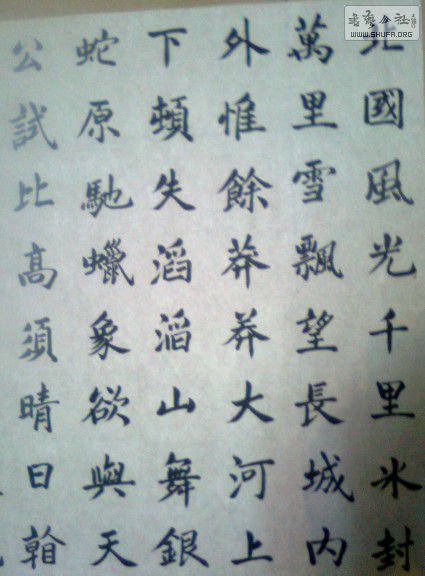 北國風光千里氷封
萬里雪飄望長城内
外惟餘莽莽大河上
下頓失滔滔山舞銀
蛇原馳蠟象欲與天
公試比高須晴日
WWW.SHUFA.ORG